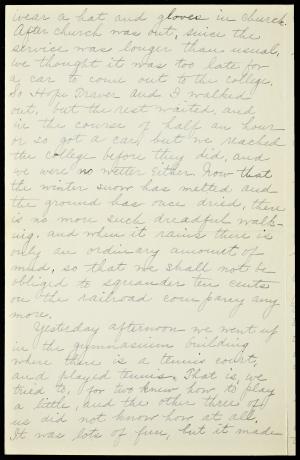 wear a hat and gloves in church.
After church was out, since the
service was longer than usual,
we thought it was too late for
a car to come out to the college.
So Hope Traver and I walked
out, but the rest waited, and
in the course of half an hour
or so got a car, but we reached
the college before they did, and
we were no wetter either. Now that
the winter snow has melted and
the ground has once dried, there
is no more such dreadful walk-
ing. and when it rains there is
only an ordinary amount of
mud, so that we shall not be
obliged to squander ten cents
on the railroad company any
more.
Yesterday afternoon we went up
in the gymnasium building
where there is a tennis court,
and played tennis. That is, we
tried to, for two knew how to play
a little, and the other three of
us did not know how at all.
It was lots of fun, but it made